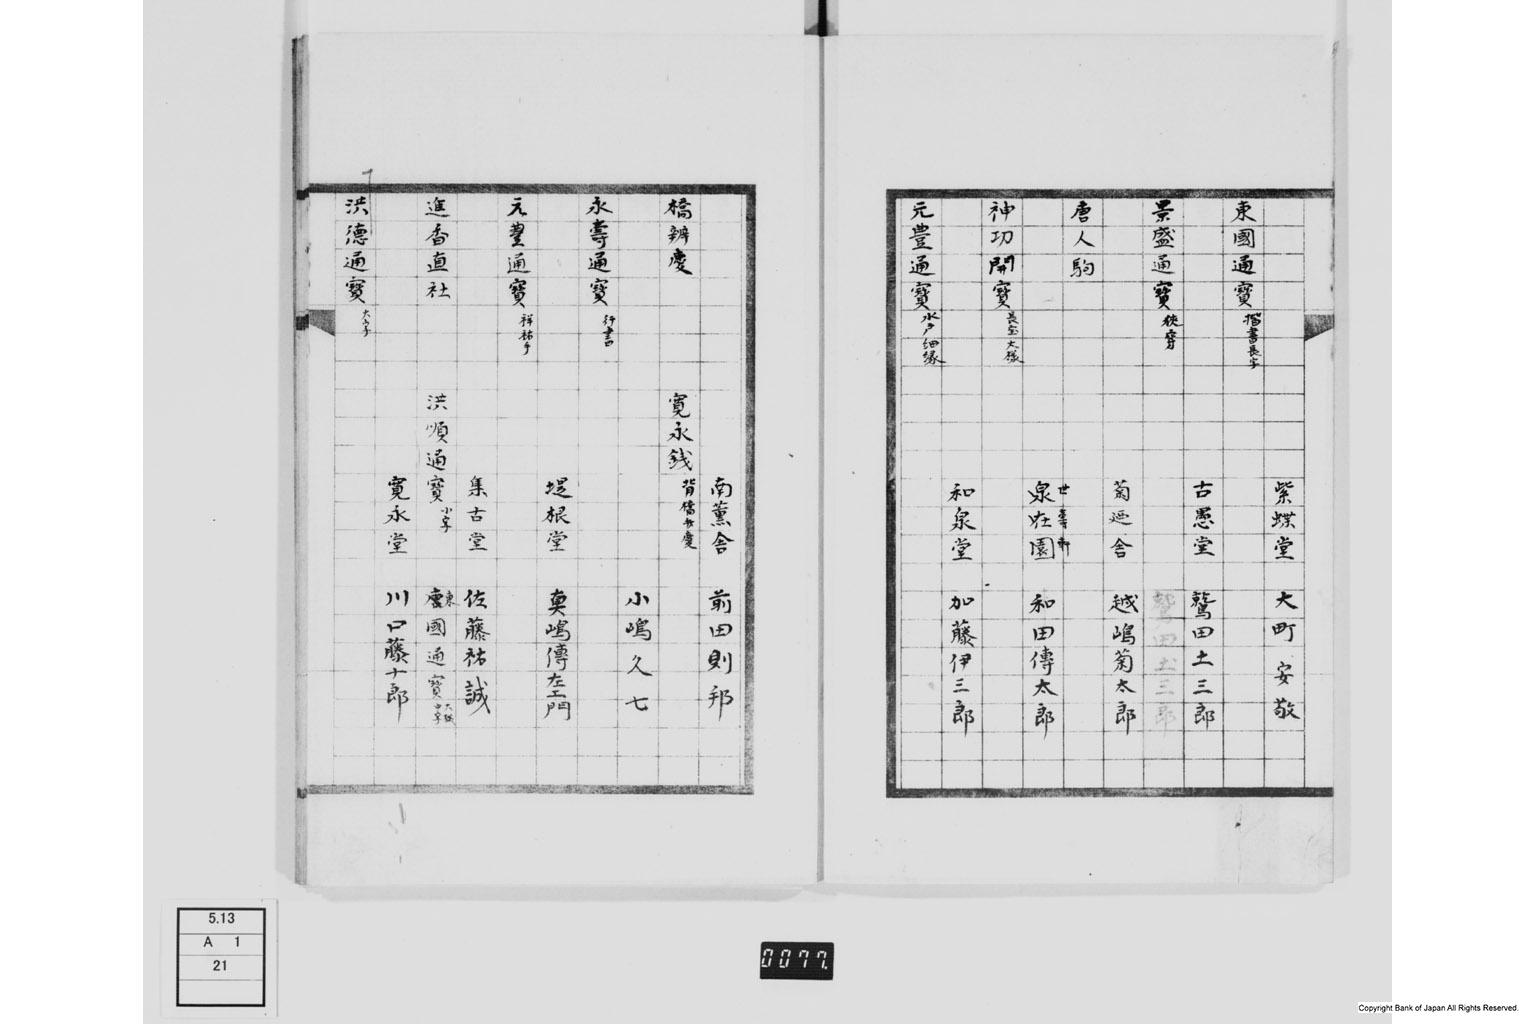 紫蝶堂 大町安敬
東國通寳 楷書長字
古愚堂 鷲田土三郎
景盛通寳 狹穿 鷲田土三郎
菊廼舎 越嶋菊太郎
唐人駒
泉在園 和田傳太郎
神功開寳 長宝 大様
和泉堂 加藤伊三郎
元豊通寳 水戸 細縁
南薫舎 前田則邦
橋辨慶 寛永銭 背橋弁慶
小嶋久七
永壽通寳 行書
堤根堂 奥嶋傳左エ門
元豊通寳 祥祐手
集古堂 佐藤祐誠
進香直社 洪順通寳 小字 東唐國通寳 大様 中字
寛永堂 川口藤十郎
洪德通寳 大字
5.13
A 1
21
0077.
Copyright Bank of Japan All Rights Reserved.